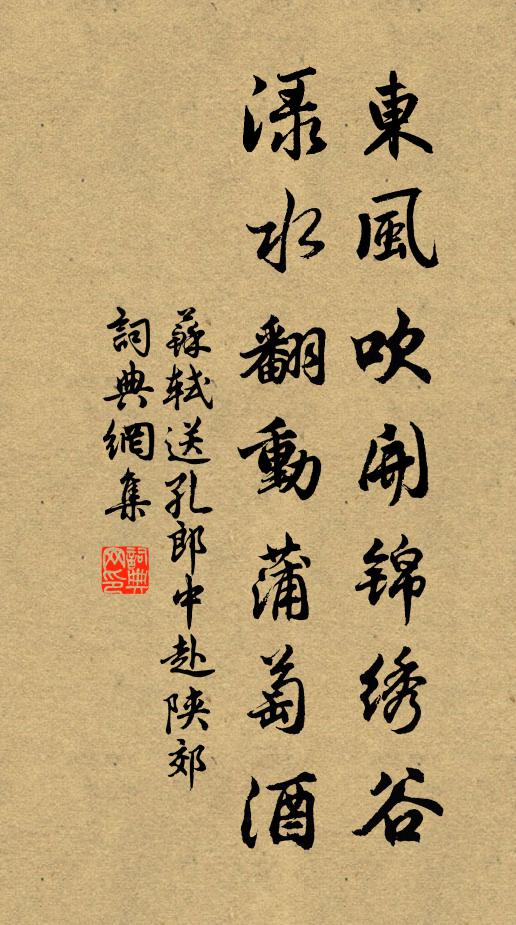 東風吹開锦绣谷
渌水翻動蒲萄酒
蘇軾送孔郎中赴陝郊
詞典網集
詞典网印